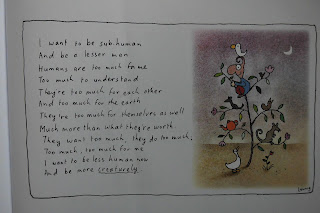 I want to be sub-human
And be a lesser man
Humans are too much for me
Too much to understand
They're too much for each other
And too much for the earth
They're too much for themselves as well
Much more than what they're worth.
They want too much, they do too much;
Too much, too much for me
I want to be less human now
And be more creaturely.
Leunig